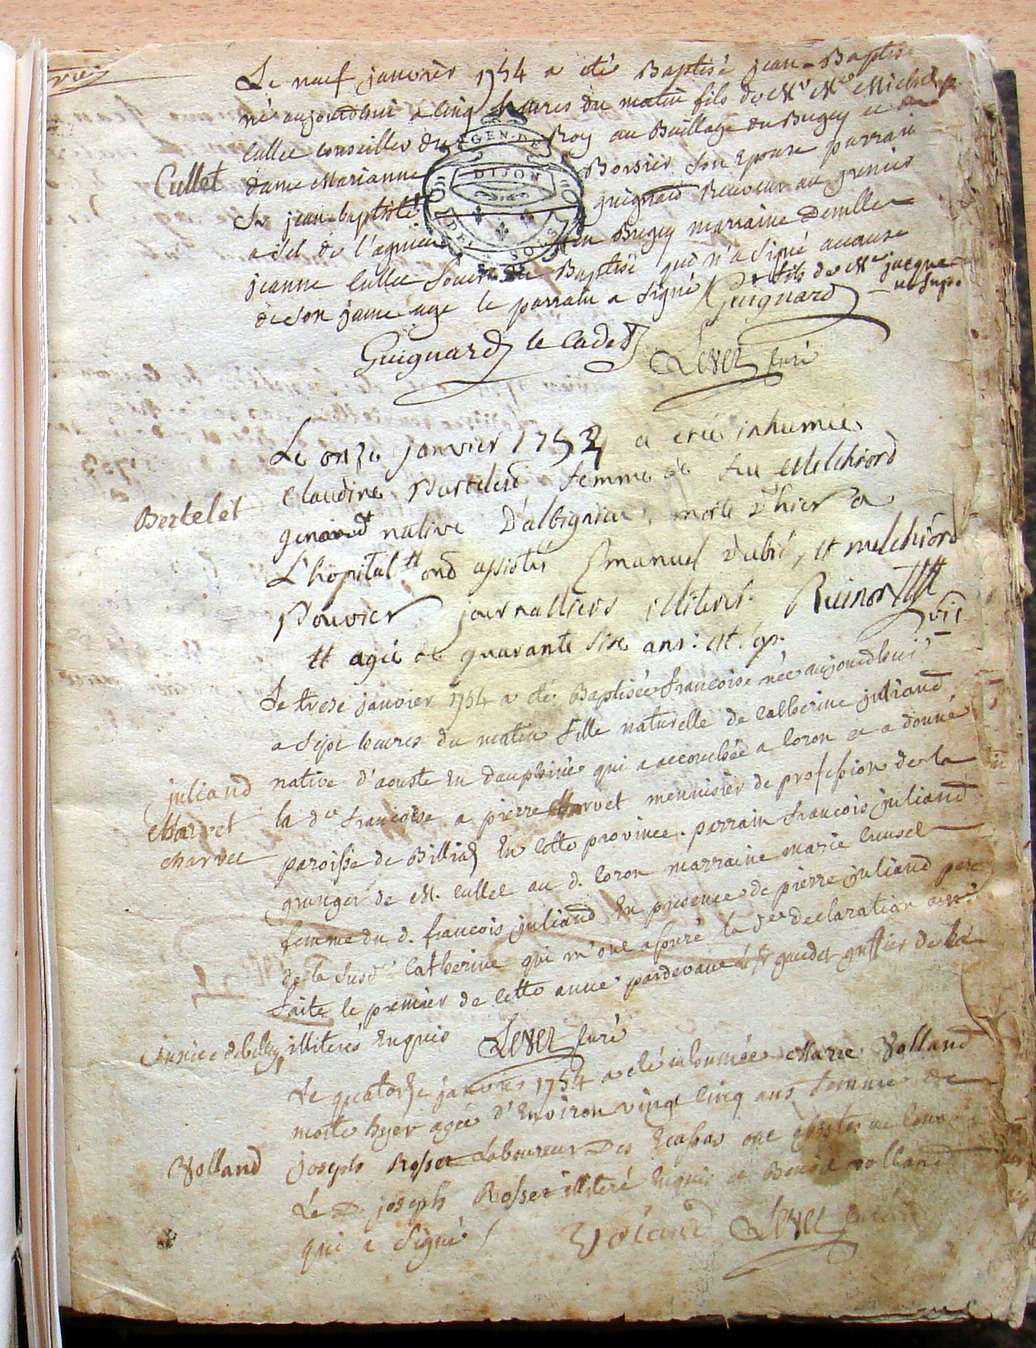 Le neuf janvier 1754 a été Baptisé jean-Baptiste
né aujourdhui a cinq heures du matin fils de Mr Me Michel
Cullet conseiller du Roy au Baillage du Bugey et de
Cullet
dame Marianne Borsier Son Epouse parrain
Sr jean-baptiste guignard Receveur au grenier
a Sel de l'agnieu en Bugey marraine demlle
jeanne Cullet Soeur du Baptisé qui n'a Signé acause
de Son jeune age le parrain a Signé
fils de Me jacque
Guignard
Guignard le Cadet
Levet Curé
GEN. DE
DIJON
DEX SOLS
Le onze janvier 1754 a eté inhumée
Claudine Bertelet femme de feu Melchiord
Bertelet
genoud native D'albignieu, morte d'hier a
L'hopital tt ond assistés Emanuel Dubié, et melchiord
Bouvier journalliers illiterés. Ruinon
vic
tt agée de quarante six ans:
Le treze janvier 1754 a été Baptisée francoise née aujourdhui
a Sept heures du matin fille naturelle de Catherine juliand,
native d'aouste En dauphiné qui a accouchée a Coron et a donné
juliand
la de francoise a pierre Marvet meunnier de profession de la
Marvet
charvet
paroisse de Billiad En cette province. parrain francois juliand
granger de M. Cullet au d. Coron marraine marie
femme du d. francois juliand En presence de pierre juliand pere
de la Susd Catherine qui m'ont assuré la de declaration avoir été
faite le premier de cette année pardevant le Sr greffier de la
justice de belley illiterés Enquis Levet Curé
Le quatorze janvier 1754 a été inhumée Marie Volland
morte hyer agée d'Environ vingt Cinq ans femme de
Volland
joseph Rosset Laboureur Des Ecassas ont assistés au Convoi
Le D. joseph Rosset illiteré Enquis et Benoit volland
qui a Signé / Voland Levet Curé